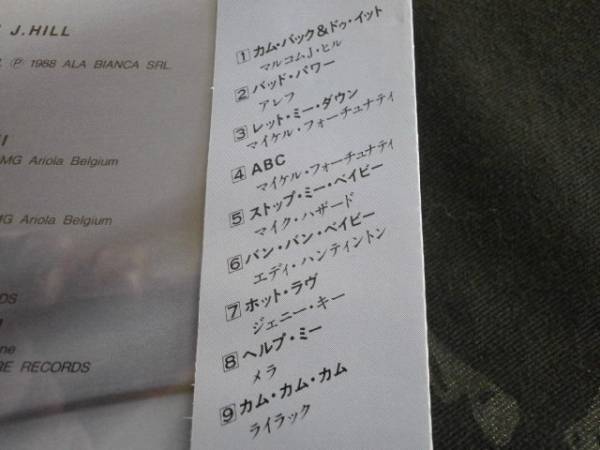 J. HILL
℗ 1988 ALA BIANCA SRL.
MG Ariola Belgium
MG Ariola Belgium
RECORDS
1 カム・バック&ドゥ・イット
マルコムJ・ヒル
2 バッド・パワー
アレフ
3 レット・ミー・ダウン
マイケル・フォーチュナティ
4 ABC
マイケル・フォーチュナティ
5 ストップ・ミー・ベイビー
マイク・ハザード
6 バン・バン・ベイビー
エディ・ハンティントン
7 ホット・ラヴ
ジェニー・キー
8 ヘルプ・ミー
メラ
9 カム・カム・カム
ライラック